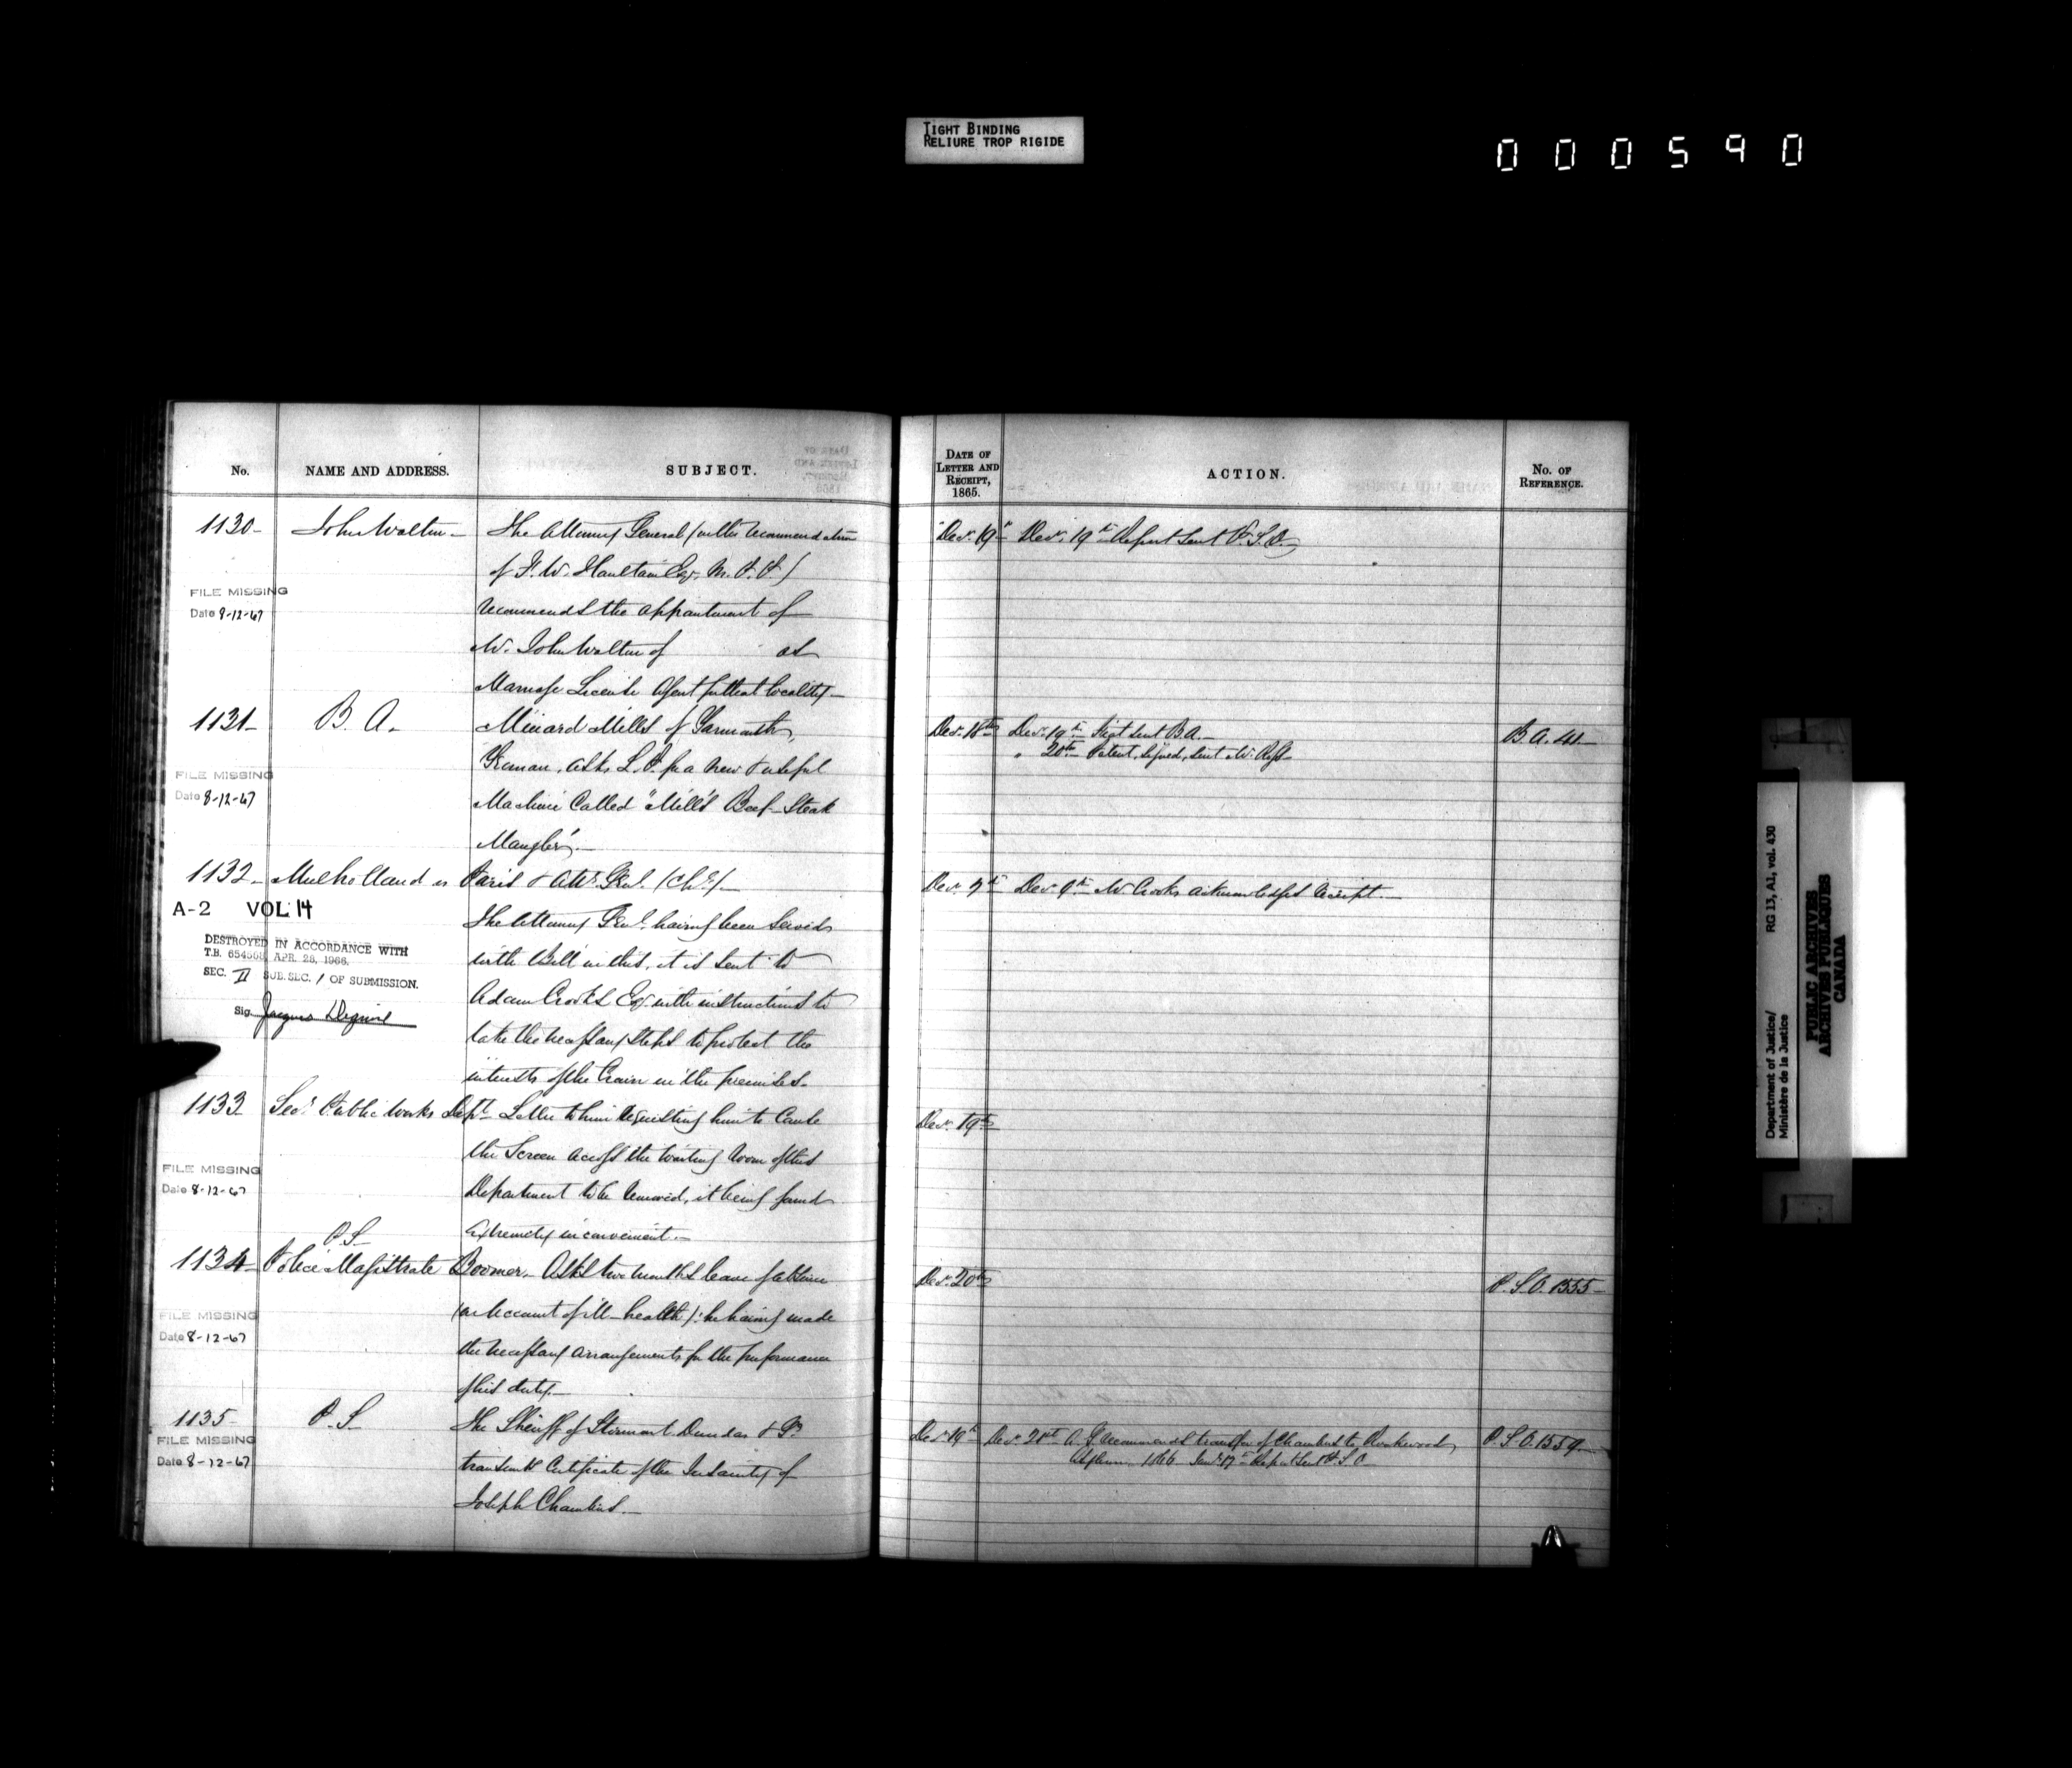 TIGHT BINDING
RELIURE TROP RIGIDE
000590
No. NAME AND ADDRESS. SUBJECT.
1130- John Walton- The Attorney General (with recommendation
of F. W. Haultain Esq. M.P.P.)
FILE MISSING
Date 8-12-67
recommends the appointment of
Mr. John Walton of as
Marriage License Agent for that locality-
1131- B. A. Minard Mills of Yarmouth,
Yeoman, asks L.P. for a new & useful
FILE MISSING
Date 8-12-67
Machine Called "Mill's Beef-Steak
Mangler".-
1132- Mulholland vs Paris & Atty. Genl. (Chy.)-
A-2 VOL 14
The Attorney Genl. having been served
DESTROYED IN ACCORDANCE WITH
T.B. 654568 APR. 28, 1966.
SEC. II SUB.SEC. 1 OF SUBMISSION.
Sig.
with Bill in this, it is sent to
Adam Crooks Esq. with instructions to
take the necessary steps to protect the
interests of the Crown in the premises-
1133 Secy. Public Works Dept. Letter to him requesting him to Cause
the Screen across the waiting room of this
FILE MISSING
Date 8-12-67
Department to be removed, it being found
extremely inconvenient.-
P.S.
1134- Police Magistrate Boomer- Asks two months leave of absence
FILE MISSING
Date 8-12-67
(on account of ill-health): he having made
the necessary arrangements for the performance
of his duty.-
1135- P.S. The Sheriff of Stormont Dundas & Gy.
FILE MISSING
Date 8-12-67
transmits Certificate of the Insanity of
Joseph Chambers.-
DATE OF
LETTER AND
RECEIPT,
1865.
ACTION.
No. OF
REFERENCE.
Decr. 19th Decr. 19th Report sent P.S.O.
Decr. 18th Decr. 19th Fiat sent B.A.- B.A. 41-
" 20th Patent, signed, sent Mr. Ross
Decr. 7th Decr. 9th Mr. Crooks acknowledges receipt.-
Decr. 19th
Decr. 20th P.S.O. 1555-
Decr. 19th Decr. 21st A.G. recommends transfer of Chambers to Rockwood P.S.O. 1559-
Asylum 1866 Jany. 17th Report sent P.S.O.
Department of Justice/
Ministère de la Justice
RG 13, A1, vol. 430
PUBLIC ARCHIVES
ARCHIVES PUBLIQUES
CANADA